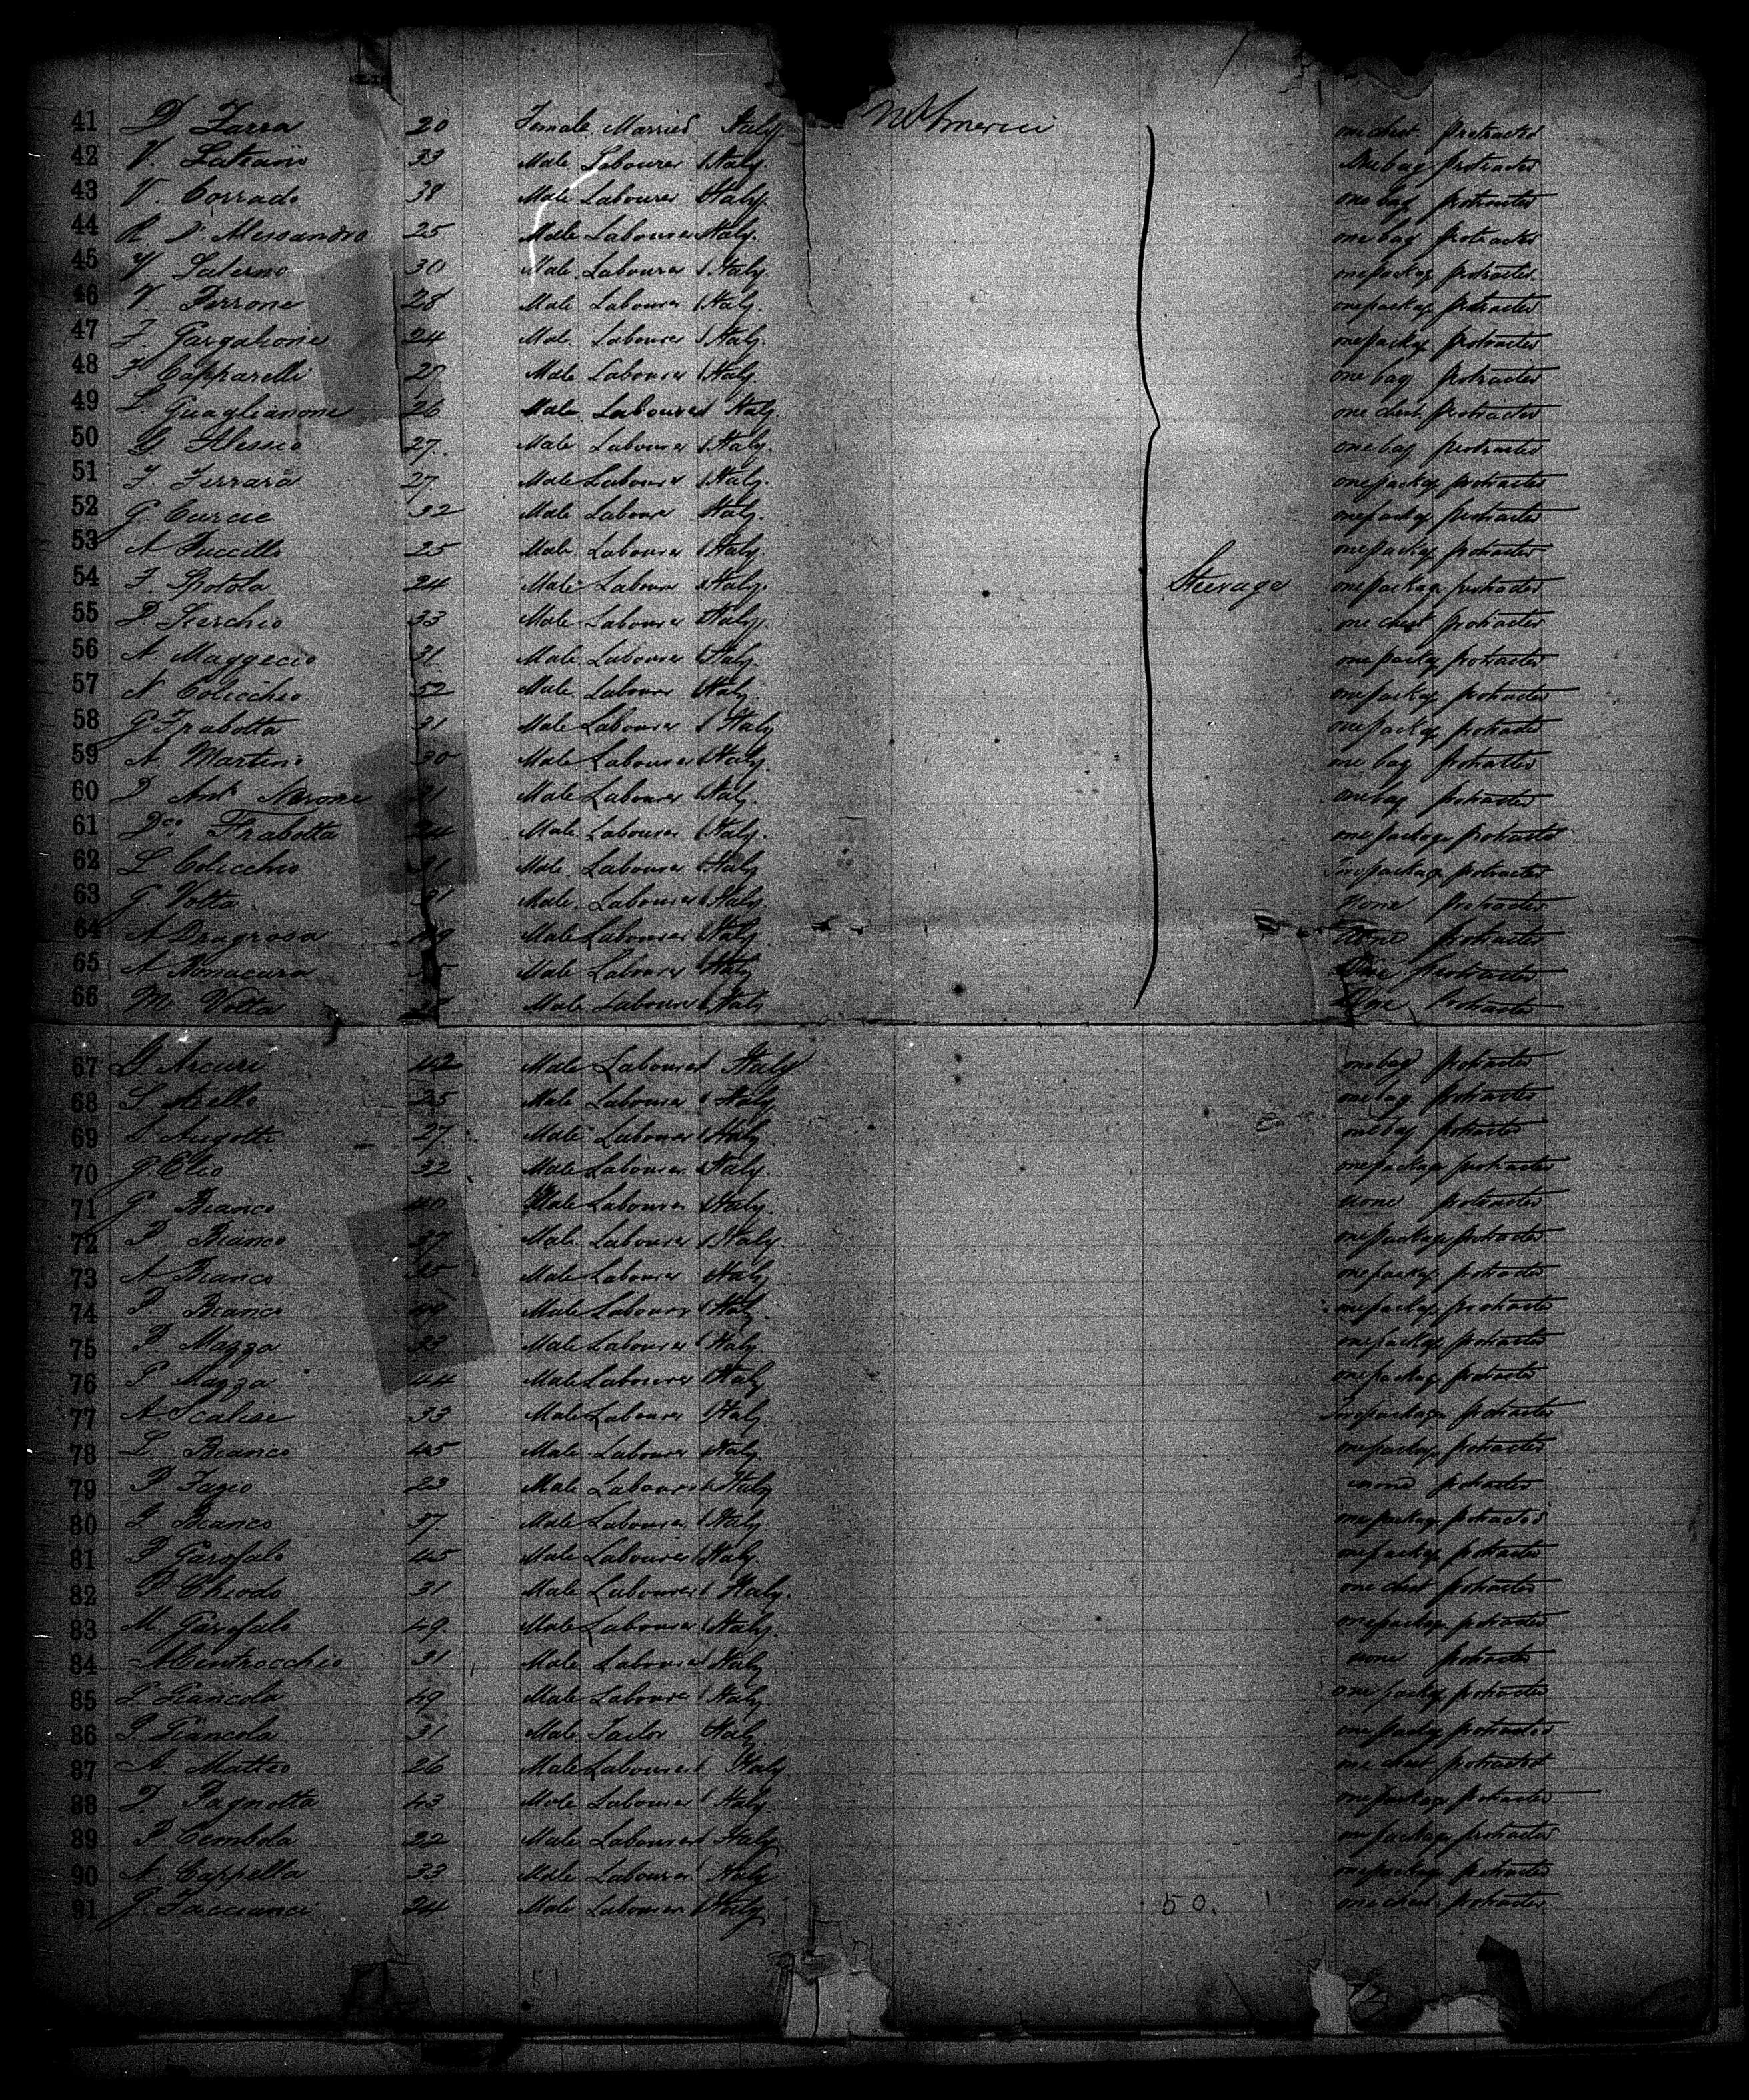 41 D Zarra 20 Female Married Italy N America one chest protracted
42 V. 33 Male Labourer Italy. One bag protracted
43 V. Corrado 38 Male Labourer Italy. one bag protracted
44 R. D'Alessandro 25 Male Labourer Italy. one bag protracted
45 V Salerno 30 Male Labourer Italy. one package protracted
46 V. Perrone 28 Male Labourer Italy. one package protracted
47 F. 24 Male Labourer Italy. one package protracted
48 F Capparelli Male Labourer Italy. one bag protracted
49 L. Guaglianone 26 Male Labourer Italy one chest protracted
50 G Alessio 27 Male Labourer Italy. one bag protracted
51 F. Ferrara 27 Male Labourer Italy. one package protracted
52 G. Curcie 32 Male Labourer Italy. one package protracted
53 A Puccillo 25 Male Labourer Italy one package protracted
54 F. Spotola 24 Male Labourer Italy. Steerage one package protracted
55 D. Serchio 33 Male Labourer Italy. one chest protracted
56 A Maggecio 31 Male Labourer Italy. one package protracted
57 N Colicchio 52 Male Labourer Italy. one package protracted
58 G Frabotta 31 Male Labourer Italy one package protracted
59 A Martino 30 Male Labourer Italy. one bag protracted
60 D Ant. Nerone 31 Male Labourer Italy. one bag protracted
61 Dco Frabotta 24 Male Labourer Italy. one package protracted
62 L Colicchio 31 Male Labourer Italy Two package protracted
63 G Votta 31 Male Labourer Italy. None protracted
64 A Dragrosa Male Labourer Italy None protracted
65 A Bonacura Male Labourer Italy None protracted
66 M Votta Male Labourer Italy None protracted
67 G Arcuri 42 Male Labourer Italy one bag protracted
68 S Aiello 25 Male Labourer Italy one bag protracted
69 S Angotti 27 Male Labourer Italy one bag protracted
70 G Elio 32 Male Labourer Italy. one package protracted
71 G. Bianco 40 Male Labourer Italy. none protracted
72 P Bianco 37 Male Labourer Italy. one package protracted
73 A Bianco Male Labourer Italy one package protracted
74 P. Bianco 49 Male Labourer Italy. one package protracted
75 P. Mazza 33 Male Labourer Italy. one package protracted
76 P Mazza 44 Male Labourer Italy one package protracted
77 A. Scalise 33 Male Labourer Italy Two package protracted
78 L. Bianco 45 Male Labourer Italy. one package protracted
79 P Fazio 23 Male Labourer Italy none protracted
80 G Bianco 37 Male Labourer Italy one package protracted
81 P. Garofalo 45 Male Labourer Italy. one package protracted
82 P Chiodo 31 Male Labourer Italy. one chest protracted
83 M Garofalo 49 Male Labourer Italy. one package protracted
84 31 Male Labourer Italy none protracted
85 P Giancola 49 Male Labourer Italy. one package protracted
86 P. Giancola 31 Male Tailor Italy one package protracted
87 A. Matteo 26 Male Labourer Italy. one chest protracted
88 F. Pagnotta 43 Male Labourer Italy. one package protracted
89 P Cembola 22 Male Labourer Italy one package protracted
90 N. Cappella 33 Male Labourer Italy one package protracted
91 G. 24 Male Labourer Italy. 50. one chest protracted
51